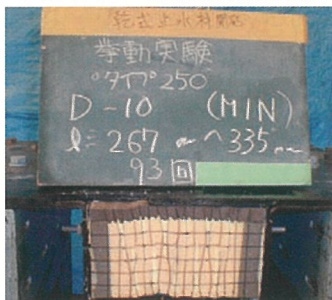 乾式止水材開発
挙動実験
°タイプ250
D-10 (MIN)
ℓ≒267mm~335mm
93回